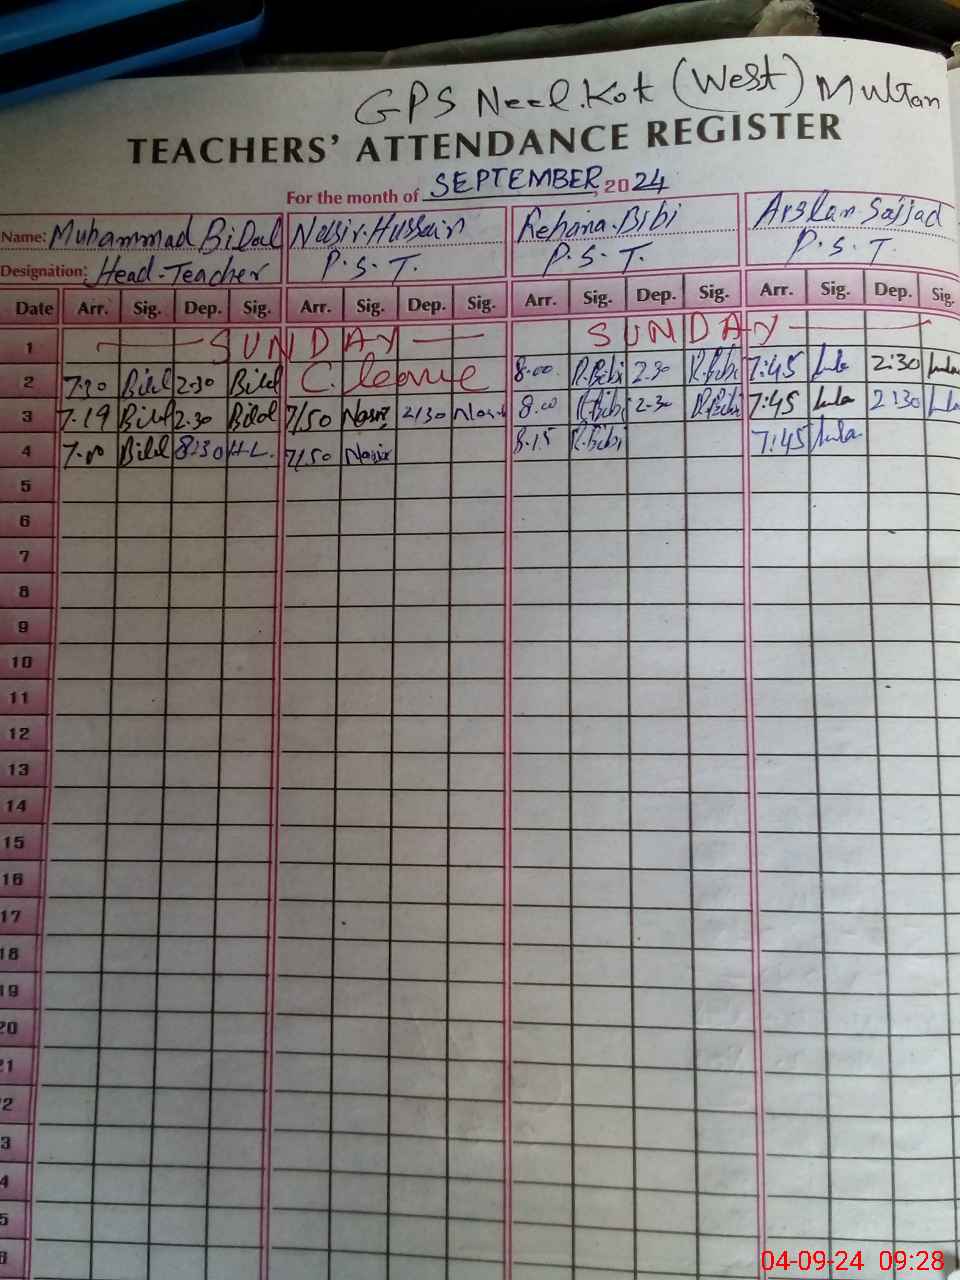 GPS Neel.Kot (West) Multan
TEACHERS' ATTENDANCE REGISTER
For the month of SEPTEMBER, 2024
Name: Muhammad Bilal Nasir.Hussain Rehana.Bibi Arslan.Sajjad
Designation: Head-Teacher P.S.T. P.S.T. P.S.T.
Date Arr. Sig. Dep. Sig. Arr. Sig. Dep. Sig. Arr. Sig. Dep. Sig. Arr. Sig. Dep. Sig.
1 SUNDAY SUNDAY
2 7.30 Bilal 2.30 Bilal C. leave 8.00 R.Bibi 2.30 R.Bibi 7:45 2:30
3 7.19 Bilal 2.30 Bilal 7/50 Nasir 2/30 Nasir 8.00 R.Bibi 2.30 R.Bibi 7:45 2:30
4 7.00 Bilal 8:30 H.L. 7/50 Nasir 8.15 R.Bibi 7:45
5
6
7
8
9
10
11
12
13
14
15
16
17
18
19
20
21
2
3
4
5
6
04-09-24 09:28